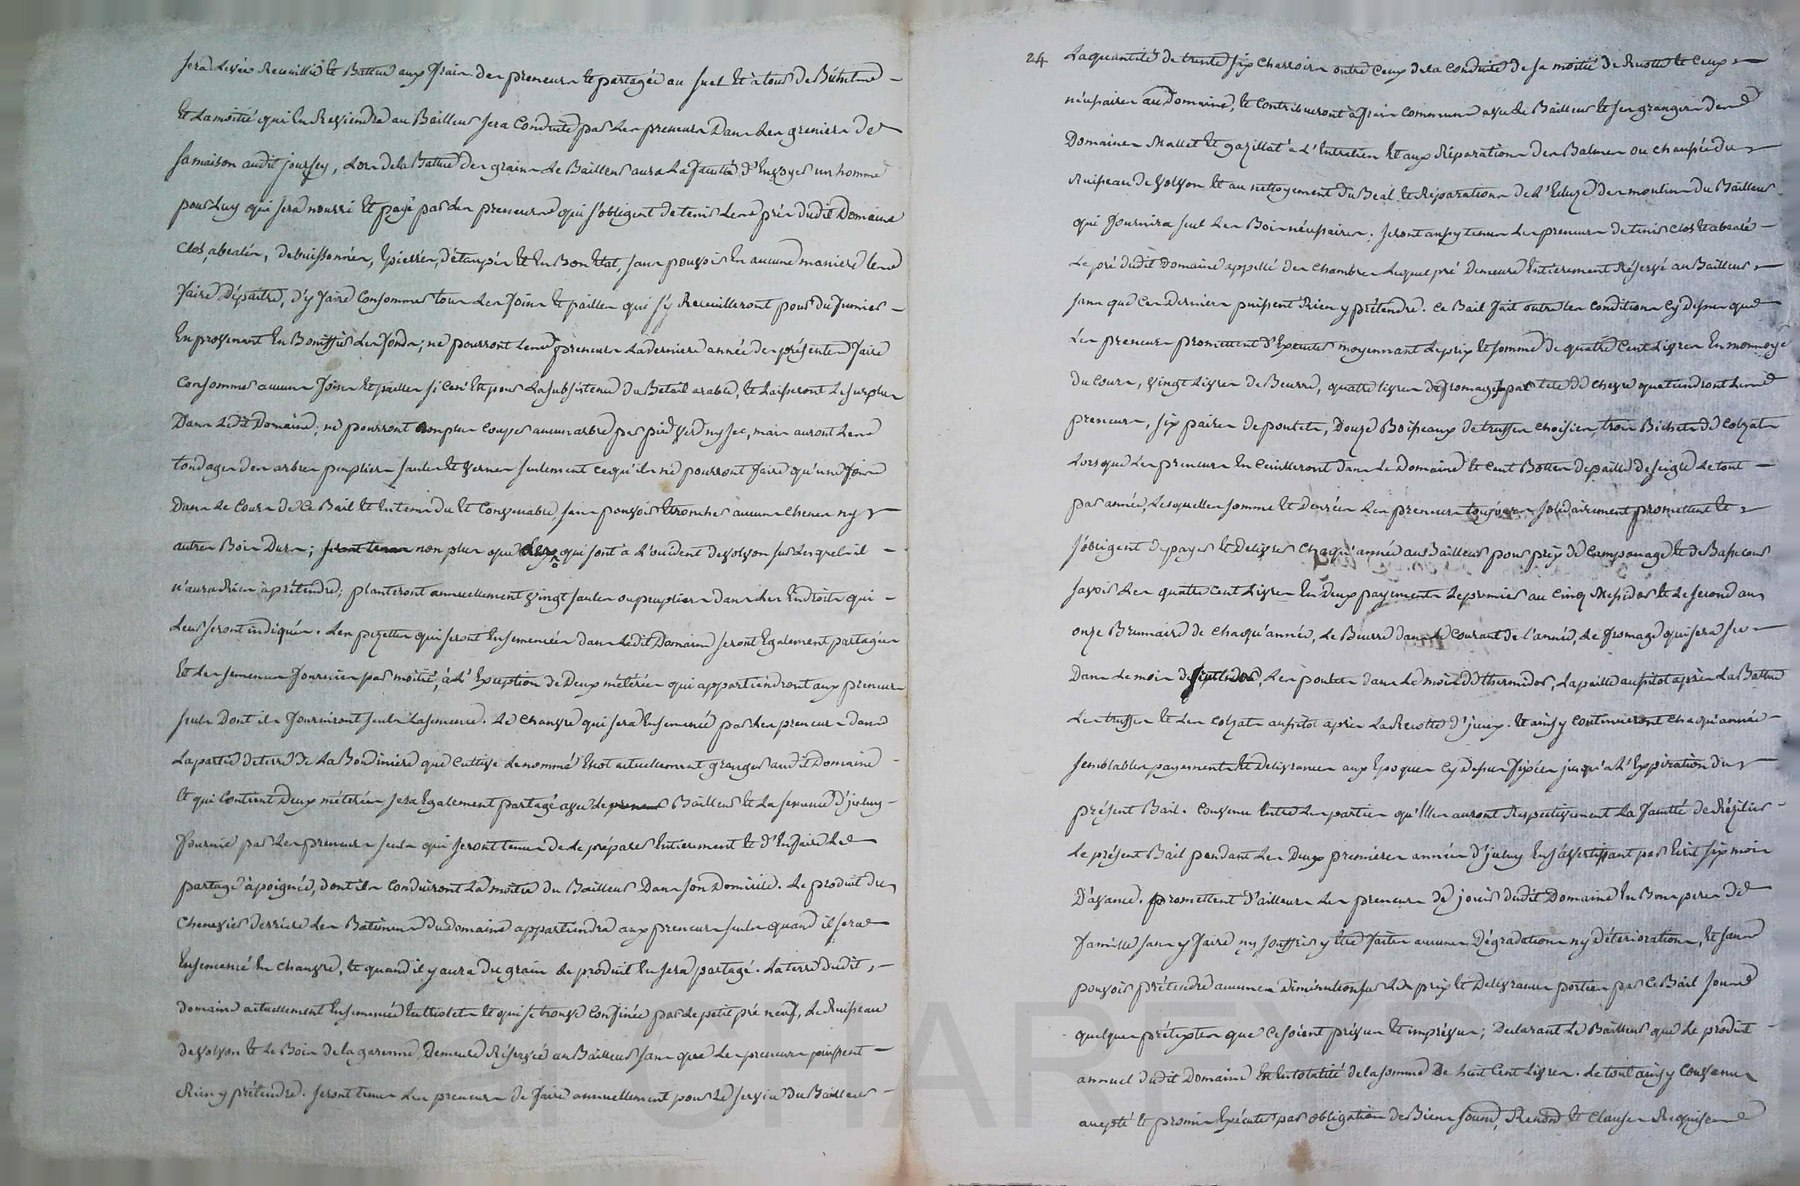 sera Levée Recueillie et Battue aux frais des preneurs et partagée au suel et à tour de Bûchet
et La moitié qui En Reviendra au Bailleur sera Conduite par Les preneurs Dans Les greniers de
sa maison audit joursey, Lors de la Battue des grains Le Bailleur aura La faculté d'Envoyer un homme
pour Luy qui sera nourri et payé par Les preneurs qui s'obligent de tenir Les prés dudit Domaine
clos, abealés, debuissonnés, Epierrés, d'étaupés et En Bon Etat, sans pouvoir En aucune maniere Les
faire Dépaitre, d'y faire Consommer tous Les foins et pailles qui s'y Recueilleront pour du fumier
En provenant En Boniffier Les fonds; ne pourront Les preneurs La derniere année des présentes faire
Consommer aucuns foins et pailles si ce n'Est pour La subsistence du Betail arable, et Laisseront Le surplus
Dans Ledit Domaine; ne pourront non plus Couper aucun arbre par pied verd ny sec, mais auront Les
tondages des arbres peupliers saules et vernes seulement ce qu'ils ne pourront faire qu'une fois
Dans Le Cours de ce Bail et En tems du et Convenable, sans pouvoir Etroncher aucuns chenes ny
autres Bois Durs; seront tenus non plus que qui sont a L'occident de volvon sur Lesquels il
n'aura Rien à prétendre; planteront annuellement vingt saules ou peupliers dans Les Endroits qui
Leur seront indiqués. Les pezettes qui seront Ensemencées dans Ledit Domaine seront Egalement partagées
Et Les semences fournies par moitié, à L'Exception de Deux méterées qui appartiendront aux preneurs
seuls Dont ils fourniront seuls La semence. Le Chanvre qui sera Ensemencé par Les preneurs dans
La partie de terre de La Boudiniere que Cultive Le nommé actuellement granger audit Domaine
et qui Contient Deux méterées sera Egalement partagé avec Le preneur Bailleur et La semence d'iceluy
fournie par Les preneurs seuls qui seront tenus de Le préparer Entierement et d'En faire Le
partage à poignée, dont ils Conduiront La moitié du Bailleur Dans son Domicile. Le produit du
Chenevier derriere Les Batimens du domaine appartiendra aux preneurs seuls quand il sera
Ensemencé En chanvre, et quand il y aura du grain Le produit En sera partagé. La terre dudit
domaine actuellement Ensemencée En triolet et qui se trouve Confinée par Le petit pré neuf, Le Ruisseau
de volvon et Le Bois de la garenne, Demeure Réservée au Bailleur sans que Les preneurs puissent
Rien y prétendre. seront tenus Les preneurs de faire annuellement pour Le service du Bailleur
24 La quantité de trente six charrois outre Ceux de la Conduite de sa moitié de Recolte et Ceux
nécessaires au Domaine, et Contribueront à frais Communs avec Le Bailleur et ses grangers des
Domaines Mallet et gazillat à L'Entretien et aux Réparations des Balmes ou chaussées du
Ruisseau de volvon et au nettoyement du Beal et Réparations de L'Ecluze des moulins du Bailleur
qui fournira seul Les Bois nécessaires; seront aussy tenus Les preneurs de tenir clos et abealé
Le pré dudit Domaine appellé des chambres Lequel pré Demeure Entierement Réservé au Bailleur
sans que Ces Derniers puissent Rien y prétendre. Ce Bail fait outre les Conditions Cy Dessus que
Les preneurs promettent d'Executer moyennant Le prix et somme de quatre Cent Livres En monnoye
du Cours, vingt Livres de Beurre, quatre livres de fromage par tete de chevre que tiendront Les
preneurs, six paires de poulets, Douze Boisseaux de truffes choisies, trois Bichets de Colzat
Lorsque Les preneurs En Cuilleront dans Le Domaine et Cent Bottes de paille de seigle Le tout
par année, Lesquelles somme et Denrées Les preneurs toujours solidairement promettent et
s'obligent de payer et Delivrer chaqu'année au Bailleur pour prix de Camponage et de Bassecour
savoir Les quatre Cent Livres En Deux payements Le premier au Cinq Messidor et Le second au
onze Brumaire de chaqu'année, Le Beurre dans Le Courant de l'année, Le fromage qui sera sec
Dans Le mois de , Les poulets dans Le mois de thermidor, La paille aussitot après La Battue
Les truffes et Les Colzats aussitot après La Recolte d'iceux. et ainsy Continueront chaqu'année
semblables payements et Delivrances aux Epoques Cy Dessus fixées jusqu'à L'Expiration du
présent Bail. Convenu Entre Les parties qu'Elles auront Respectivement La faculté de Résilier
Le présent Bail pendant Les Deux premieres années d'iceluy En s'avertissant par Ecrit six mois
D'avance. promettent d'ailleurs Les preneurs de jouir dudit Domaine En Bons peres de
famille sans y faire ny souffrir y Etre faites aucunes Dégradations ny déteriorations, et sans
pouvoir prétendre aucunes Diminutions sur Les prix et Delivrances portées par Ce Bail sous
quelques prétextes que Ce soient prévus et imprévus; Declarant Le Bailleur que Le produit
annuel dudit Domaine En totalité de la somme De huit Cent Livres. Le tout ainsy Convenu
accepté et promis Exécuter par obligation de Biens soum, Renon et clauses Requises